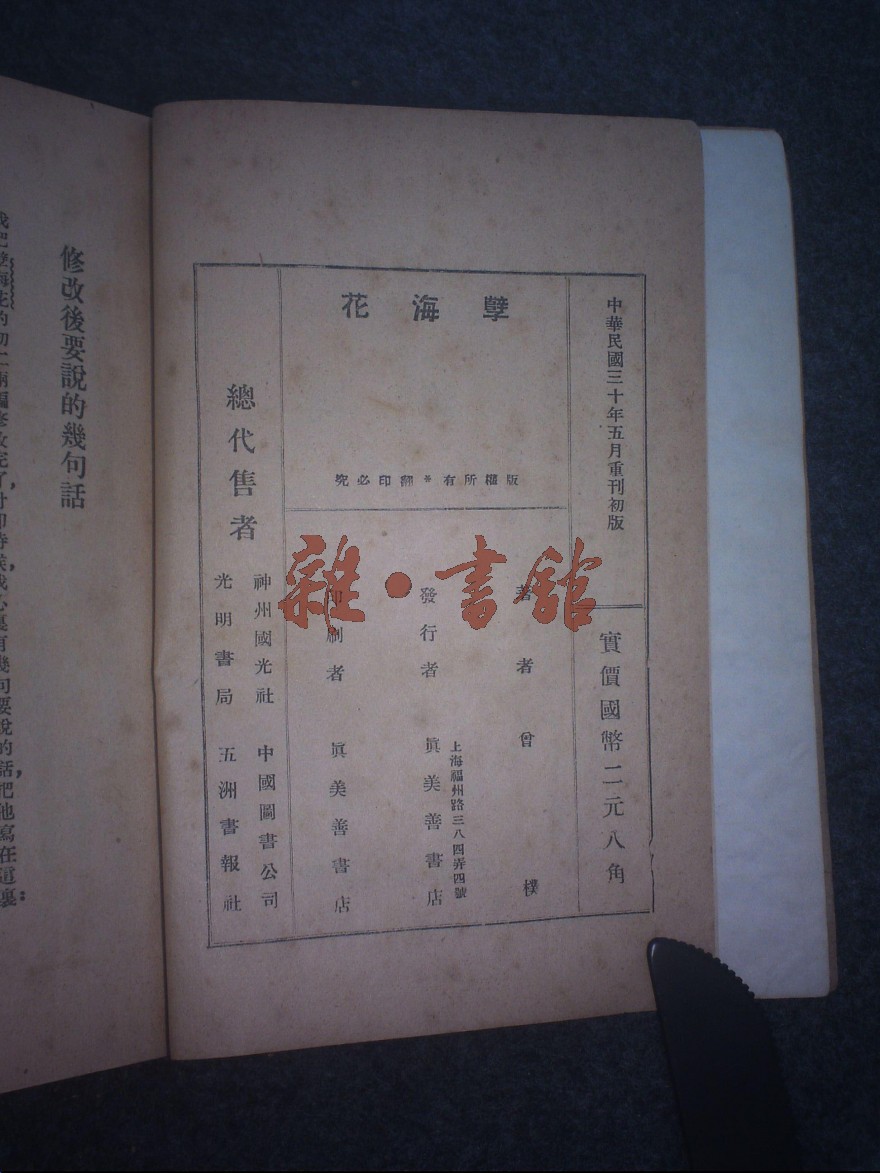 中華民國三十年五月重刊初版
實價國幣二元八角
孽海花
版權所有 翻印必究
著者 曾樸
發行者 眞美善書店
上海福州路三八四弄四號
印刷者 眞美善書店
總代售者
神州國光社 中國圖書公司
光明書局 五洲書報社
雜·書館
修改後要說的幾句話
我把孽海花的初二兩編修改完了,付印時候,我心裏有幾句要說的話,把他寫在這裏: